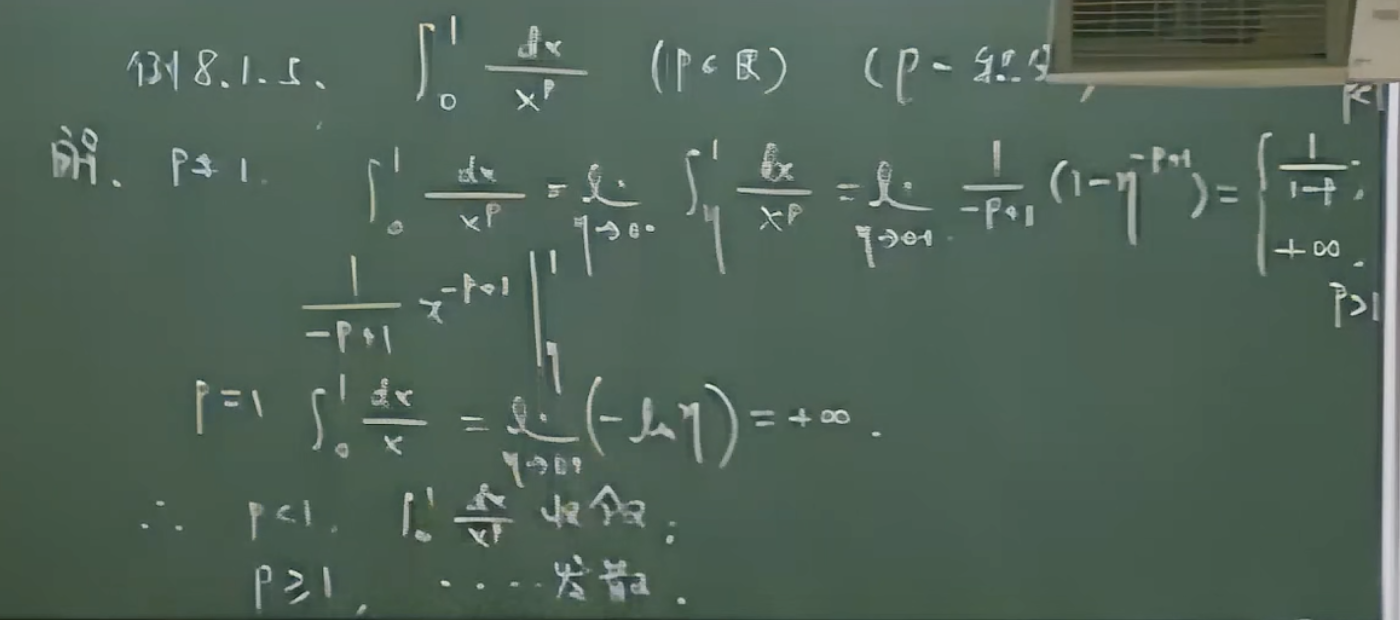 例8.1.5. ∫₀¹ dx/x^p (p∈ℝ) (p-
解. p≠1. ∫₀¹ dx/x^p = lim_{η→0+} ∫_η¹ dx/x^p = lim_{η→0+} 1/(-p+1) (1-η^{-p+1}) = { 1/(1-p), p<1; +∞. p>1
1/(-p+1) x^{-p+1} |_η¹
p=1 ∫₀¹ dx/x = lim_{η→0+} (-ln η) = +∞.
∴ p<1. ∫₀¹ dx/x^p 收敛;
p≥1, ....发散.